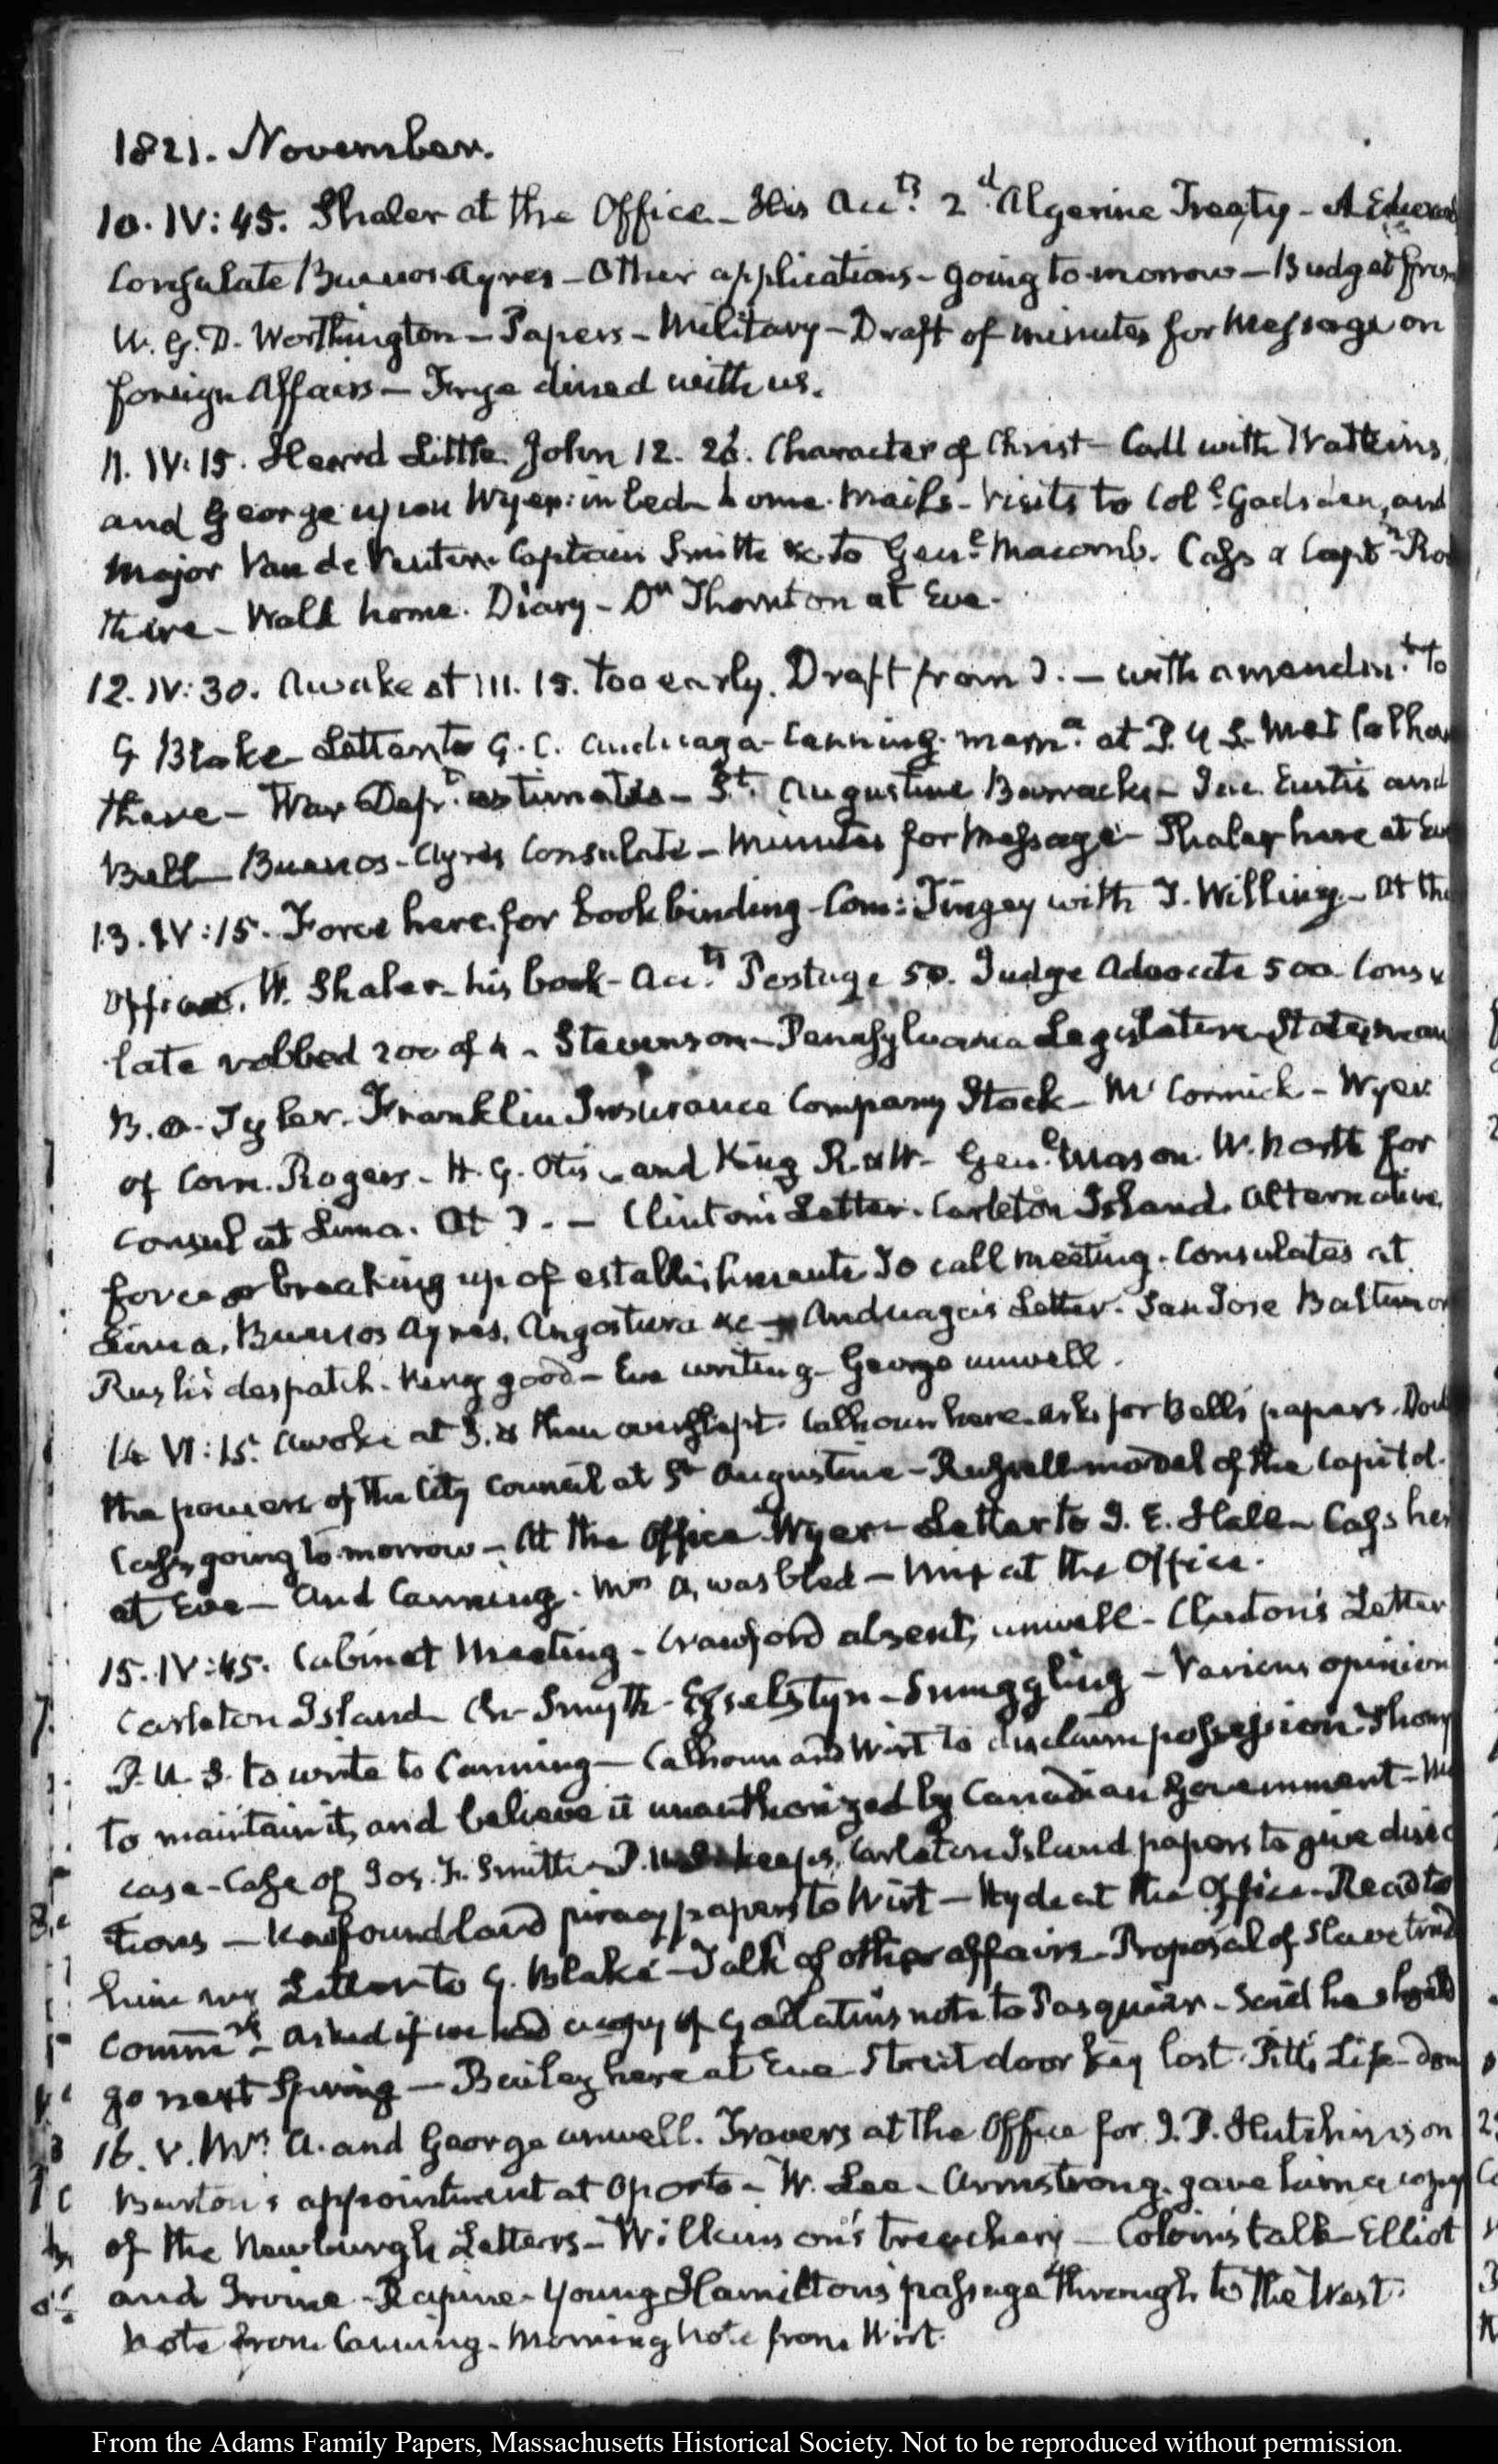 1821. November.
10. IV: 45. Shaler at the Office - His Accts. 2d. Algerine Treaty - A Edward
Consulate Buenos Ayres - Other applications - going to-morrow - Budget from
W. G. D. Worthington - Papers - Military - Draft of minutes for Message on
foreign Affairs - Frye dined with us.
11. IV: 15. Heard Little. John 12. 26. Character of Christ - Call with Watkins,
and George upon Wyer: in bed - home. Mails - Visits to Coll. Gadsden, and
Major Van de Venter. Captain Smith &c to Genl. Macomb. Cass & Captn
there - Walk home. Diary - Dr Thornton at Eve.
12. IV: 30. Awake at III. 15. too early. Draft from - with amendmts. to
G Blake - Letter to G. C. Anduaga - Canning mema. at P. U S. Met Calhoun
there - War Dept. estimates - St. Augustine Barracks - Eustis and
Bell - Buenos-Ayres Consulate - Minutes for Message - Shaler here at Eve
13. IV: 15. Force here for bookbinding - Com: Tingey with T. Willing - At the
Office. W. Shaler - his book - Accts. Postage 50. Judge Advocate 500 Consu
late robbed 200 of 4 - Stevenson - Pennsylvania Legislature
B. O. Tyler. Franklin Insurance Company Stock - McCormick - Wyer
of Com. Rogers - H. G. Otis - and King R & W - Genl. Mason. W. North for
Consul at Lima. At - Clinton's Letter. Carleton Island. Alternative
force or breaking up of establishments To call meeting. Consulates at
Lima, Buenos Ayres, Angostura &c - Anduaga's Letter. San Jose Baltimor
Rush's despatch. King good - Eve writing - George unwell.
14 VI: 15. Awoke at 3. & then overslept. Calhoun here. asks for Bell's papers.
the powers of the City Council at St Augustine - Russell model of the Capitol.
Cass, going to-morrow - At the Office Wyer - Letter to J. E. Hall - Cass here
at Eve - and Canning. Mrs A. was bled - at the Office.
15. IV: 45. Cabinet Meeting - Crawford absent, unwell - Clinton's Letter
Carleton Island - Smyth - Esselstyn - Smuggling - Various opinion
P. U. S. to write to Canning - Calhoun and Wirt to disclaim possession Thomp
to maintain it, and believe it unauthorized by Canadian Government -
case - Case of Jos. F. Smith - P. U.S. keeps Carleton Island papers to give direc
tions - Newfoundland piracy papers to Wirt - Hyde at the Office - Read to
him my Letter to G. Blake - Talk of other affairs - Proposal of Slave trade
Commrs - asked if we had a copy of Gallatin's note to Pasquier - Said he should
go next Spring - Bailey here at Eve. Street door key lost. Pitt's Life - done
16. V. Mrs. A. and George unwell. Travers at the Office for J. P. Hutchinson
Burton's appointment at Oporto - W. Lee - Armstrong. gave him a copy
of the Newburgh Letters - Wilkinson's treachery - Colvin's talk - Elliot
and Irvine - Rapine - young Hamilton's passage through to the West.
Note from Canning - Morning note from Wirt.
From the Adams Family Papers, Massachusetts Historical Society. Not to be reproduced without permission.